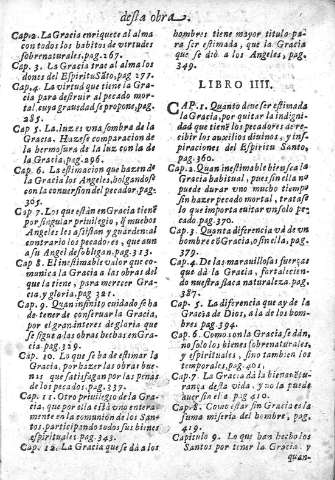 desta obra.
Cap. 2. La Gracia enriquece al alma
con todos los habitos de virtudes
sobrenaturales, pag. 267.
Cap. 3. La Gracia trae al alma los
dones del Espiritu Sãto, pag. 277.
Cap. 4. La virtud que tiene la Gra-
cia para destruir al pecado mor-
tal, cuya gravedad se propone, pag.
285.
Cap 5. La luz es una sombra de la
Gracia. Hazese comparacion de
la hermosura de la luz con la de
la Gracia, pag. 296.
Cap. 6. La estimacion que hazen de
la Gracia los Angeles, holgandose
con la conversion del pecador. pag.
305.
Cap 7. Los que estàn en Gracia tienẽ
por singular privilegio, q̃ muchos
Angeles les assistan y guarden: al
contrario los pecadores, que aun
a su Angel desobligan. pag. 313.
Cap 8. El inestimable valor que co-
munica la Gracia a las obras del
que la tiene, para merecer Gra-
cia, y gloria, pag 321.
Cap. 9. Quan infinito cuidado se ha
de tener de conservar la Gracia,
por el gran interes de gloria que
se sigue a las obras hechas en Gra-
cia pag. 329.
Cap. 10. Lo que se ha de estimar la
Gracia, por hazer las obras bue-
nas que satisfagan por las penas
de los pecados. pag. 337.
Cap. 11. Otro privilegio de la Gra-
cia, que por ella està uno entera-
mente en la comunion de los San-
tos, participando todos sus bienes
espirituales. pag. 343.
Cap. 12. La Gracia se dà a los
hombres tiene mayor titulo pa-
ra ser estimada, que la Gracia
que se diò a los Angeles, pag.
349.
LIBRO IIII.
CAP. 1. Quanto deve ser estimada
la Gracia, por quitar la indigni-
dad que tienẽ los pecadores a re-
cibir los auxilios divinos, y ins-
piraciones del Espiritu Santo,
pag. 360.
Cap. 2. Quan inestimable bien sea la
Gracia habitual, pues sin ella no
puede durar uno mucho tiempo
sin hazer pecado mortal, tratase
lo que importa evitar un solo pe-
cado pag. 370.
Cap. 3. Quanta diferencia và de un
hombre cõ Gracia, o sin ella, pag.
379.
Cap. 4. De las maravillosas fuerças
que dà la Gracia, fortaleciendo
nuestra flaca naturaleza. pag.
387.
Cap. 5. La diferencia que ay de la
Gracia de Dios, a la de los hom-
bres pag. 394.
Cap. 6. Como con la Gracia se dàn,
no solo los bienes sobrenaturales,
y espirituales, sino tambien los
temporales, pag. 401.
Cap. 7. La Gracia dà la bienaventu-
rança desta vida, y no la puede
aver sin el a pag 410.
Cap. 8. Como estar sin Gracia es la
suma miseria del hombre, pag.
419.
Capitulo 9. Lo que han hecho los
Santos por tener la Gracia, y
quan-